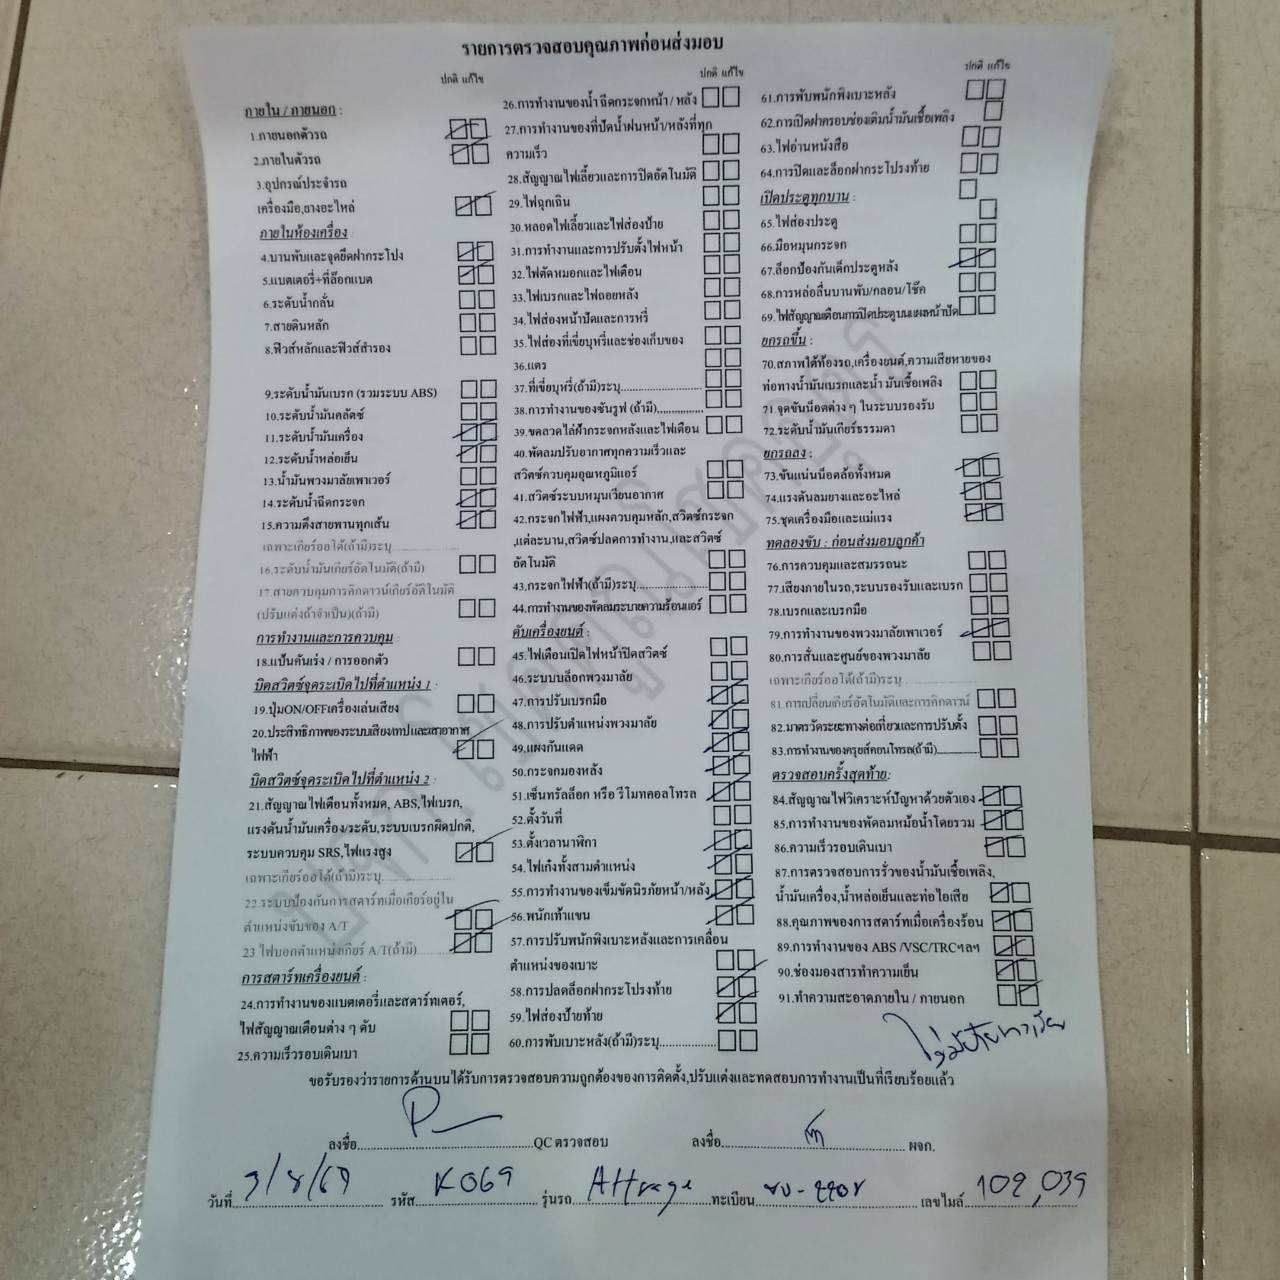 รายการตรวจสอบคุณภาพก่อนส่งมอบ
ปกติ แก้ไข
ภายใน / ภายนอก :
1.ภายนอกตัวรถ
2.ภายในตัวรถ
3.อุปกรณ์ประจำรถ
เครื่องมือ,ยางอะไหล่
ภายในห้องเครื่อง :
4.บานพับและจุดยึดฝากระโปรง
5.แบตเตอรี่+ที่ล็อกแบต
6.ระดับน้ำกลั่น
7.สายดินหลัก
8.ฟิวส์หลักและฟิวส์สำรอง
9.ระดับน้ำมันเบรก (รวมระบบ ABS)
10.ระดับน้ำมันคลัตช์
11.ระดับน้ำมันเครื่อง
12.ระดับน้ำหล่อเย็น
13.น้ำมันพวงมาลัยเพาเวอร์
14.ระดับน้ำฉีดกระจก
15.ความตึงสายพานทุกเส้น
เฉพาะเกียร์ออโต้(ถ้ามี)ระบุ
16.ระดับน้ำมันเกียร์อัตโนมัติ(ถ้ามี)
17 สายควบคุมการคิกดาวน์เกียร์อัติโนมัติ
(ปรับแต่งถ้าจำเป็น)(ถ้ามี)
การทำงานและการควบคุม :
18.แป้นคันเร่ง / การออกตัว
บิดสวิตช์จุดระเบิดไปที่ตำแหน่ง 1 :
19.ปุ่มON/OFFเครื่องเล่นเสียง
20.ประสิทธิภาพของระบบเสียง/เทปและเสาอากาศ
ไฟฟ้า
บิดสวิตช์จุดระเบิดไปที่ตำแหน่ง 2 :
21.สัญญาณไฟเตือนทั้งหมด, ABS,ไฟเบรก,
แรงดันน้ำมันเครื่อง/ระดับ,ระบบเบรกผิดปกติ,
ระบบควบคุม SRS,ไฟแรงสูง
เฉพาะเกียร์ออโต้(ถ้ามี)ระบุ
22.ระบบป้องกันการสตาร์ทเมื่อเกียร์อยู่ใน
ตำแหน่งขับของ A/T
23 ไฟบอกตำแหน่งเกียร์ A/T(ถ้ามี)
การสตาร์ทเครื่องยนต์ :
24.การทำงานของแบตเตอรี่และสตาร์ทเตอร์,
ไฟสัญญาณเตือนต่าง ๆ ดับ
25.ความเร็วรอบเดินเบา
ปกติ แก้ไข
26.การทำงานของน้ำ ฉีดกระจกหน้า / หลัง
27.การทำงานของที่ปัดน้ำฝนหน้า/หลังที่ทุก
ความเร็ว
28.สัญญาณไฟเลี้ยวและการปิดอัตโนมัติ
29.ไฟฉุกเฉิน
30.หลอดไฟเลี้ยวและไฟส่องป้าย
31.การทำงานและการปรับตั้งไฟหน้า
32.ไฟตัดหมอกและไฟเตือน
33.ไฟเบรกและไฟถอยหลัง
34.ไฟส่องหน้าปัดและการหรี่
35.ไฟส่องที่เขี่ยบุหรี่และช่องเก็บของ
36.แตร
37.ที่เขี่ยบุหรี่(ถ้ามี)ระบุ
38.การทำงานของซันรูฟ (ถ้ามี)
39.ขดลวดไล่ฝ้ากระจกหลังและไฟเตือน
40.พัดลมปรับอากาศทุกความเร็วและ
สวิตช์ควบคุมอุณหภูมิแอร์
41.สวิตช์ระบบหมุนเวียนอากาศ
42.กระจกไฟฟ้า,แผงควบคุมหลัก,สวิตช์กระจก
,แต่ละบาน,สวิตช์ปลดการทำงาน,และสวิตช์
อัตโนมัติ
43.กระจกไฟฟ้า(ถ้ามี)ระบุ
44.การทำงานของพัดลมระบายความร้อนแอร์
ดับเครื่องยนต์ :
45.ไฟเตือนเปิดไฟหน้าปิดสวิตช์
46.ระบบบล็อกพวงมาลัย
47.การปรับเบรกมือ
48.การปรับตำแหน่งพวงมาลัย
49.แผงกันแดด
50.กระจกมองหลัง
51.เซ็นทรัลล็อก หรือ รีโมทคอลโทรล
52.ตั้งวันที่
53.ตั้งเวลานาฬิกา
54.ไฟเก๋งทั้งสามตำแหน่ง
55.การทำงานของเข็มขัดนิรภัยหน้า/หลัง
56.พนักเท้าแขน
57.การปรับพนักพิงเบาะหลังและการเคลื่อน
ตำแหน่งของเบาะ
58.การปลดล็อกฝากระโปรงท้าย
59.ไฟส่องป้ายท้าย
60.การพับเบาะหลัง(ถ้ามี)ระบุ
ปกติ แก้ไข
61.การพับพนักพิงเบาะหลัง
62.การเปิดฝาครอบช่องเติมน้ำมันเชื้อเพลิง
63.ไฟอ่านหนังสือ
64.การปิดและล็อกฝากระโปรงท้าย
เปิดประตูทุกบาน :
65.ไฟส่องประตู
66.มือหมุนกระจก
67.ล็อกป้องกันเด็กประตูหลัง
68.การหล่อลื่นบานพับ/กลอน/โช๊ค
69.ไฟสัญญาณเตือนการปิดประตูบนแผงหน้าปัด
ยกรถขึ้น :
70.สภาพใต้ท้องรถ,เครื่องยนต์,ความเสียหายของ
ท่อทางน้ำมันเบรกและน้ำ มันเชื้อเพลิง
71.จุดขันน็อตต่าง ๆ ในระบบรองรับ
72.ระดับน้ำมันเกียร์ธรรมดา
ยกรถลง :
73.ขันแน่นน็อตล้อทั้งหมด
74.แรงดันลมยางและอะไหล่
75.ชุดเครื่องมือและแม่แรง
ทดลองขับ : ก่อนส่งมอบลูกค้า
76.การควบคุมและสมรรถนะ
77.เสียงภายในรถ,ระบบรองรับและเบรก
78.เบรกและเบรกมือ
79.การทำงานของพวงมาลัยเพาเวอร์
80.การสั่นและศูนย์ของพวงมาลัย
เฉพาะเกียร์ออโต้(ถ้ามี)ระบุ
81.การเปลี่ยนเกียร์อัตโนมัติและการคิกดาวน์
82.มาตรวัดระยะทางต่อเที่ยวและการปรับตั้ง
83.การทำงานของครุยส์คอนโทรล(ถ้ามี)
ตรวจสอบครั้งสุดท้าย:
84.สัญญาณไฟวิเคราะห์ปัญหาด้วยตัวเอง
85.การทำงานของพัดลมหม้อน้ำโดยรวม
86.ความเร็วรอบเดินเบา
87.การตรวจสอบการรั่วของน้ำมันเชื้อเพลิง,
น้ำมันเครื่อง,น้ำหล่อเย็นและท่อไอเสีย
88.คุณภาพของการสตาร์ทเมื่อเครื่องร้อน
89.การทำงานของ ABS /VSC/TRCฯลฯ
90.ช่องมองสารทำความเย็น
91.ทำความสะอาดภายใน / ภายนอก
ขอรับรองว่ารายการด้านบนได้รับการตรวจสอบความถูกต้องของการติดตั้ง,ปรับแต่งและทดสอบการทำงานเป็นที่เรียบร้อยแล้ว
ลงชื่อ QC ตรวจสอบ ลงชื่อ ผจก.
วันที่ 9/8/69 รหัส K069 รุ่นรถ Attrage ทะเบียน เลขไมล์ 109,039